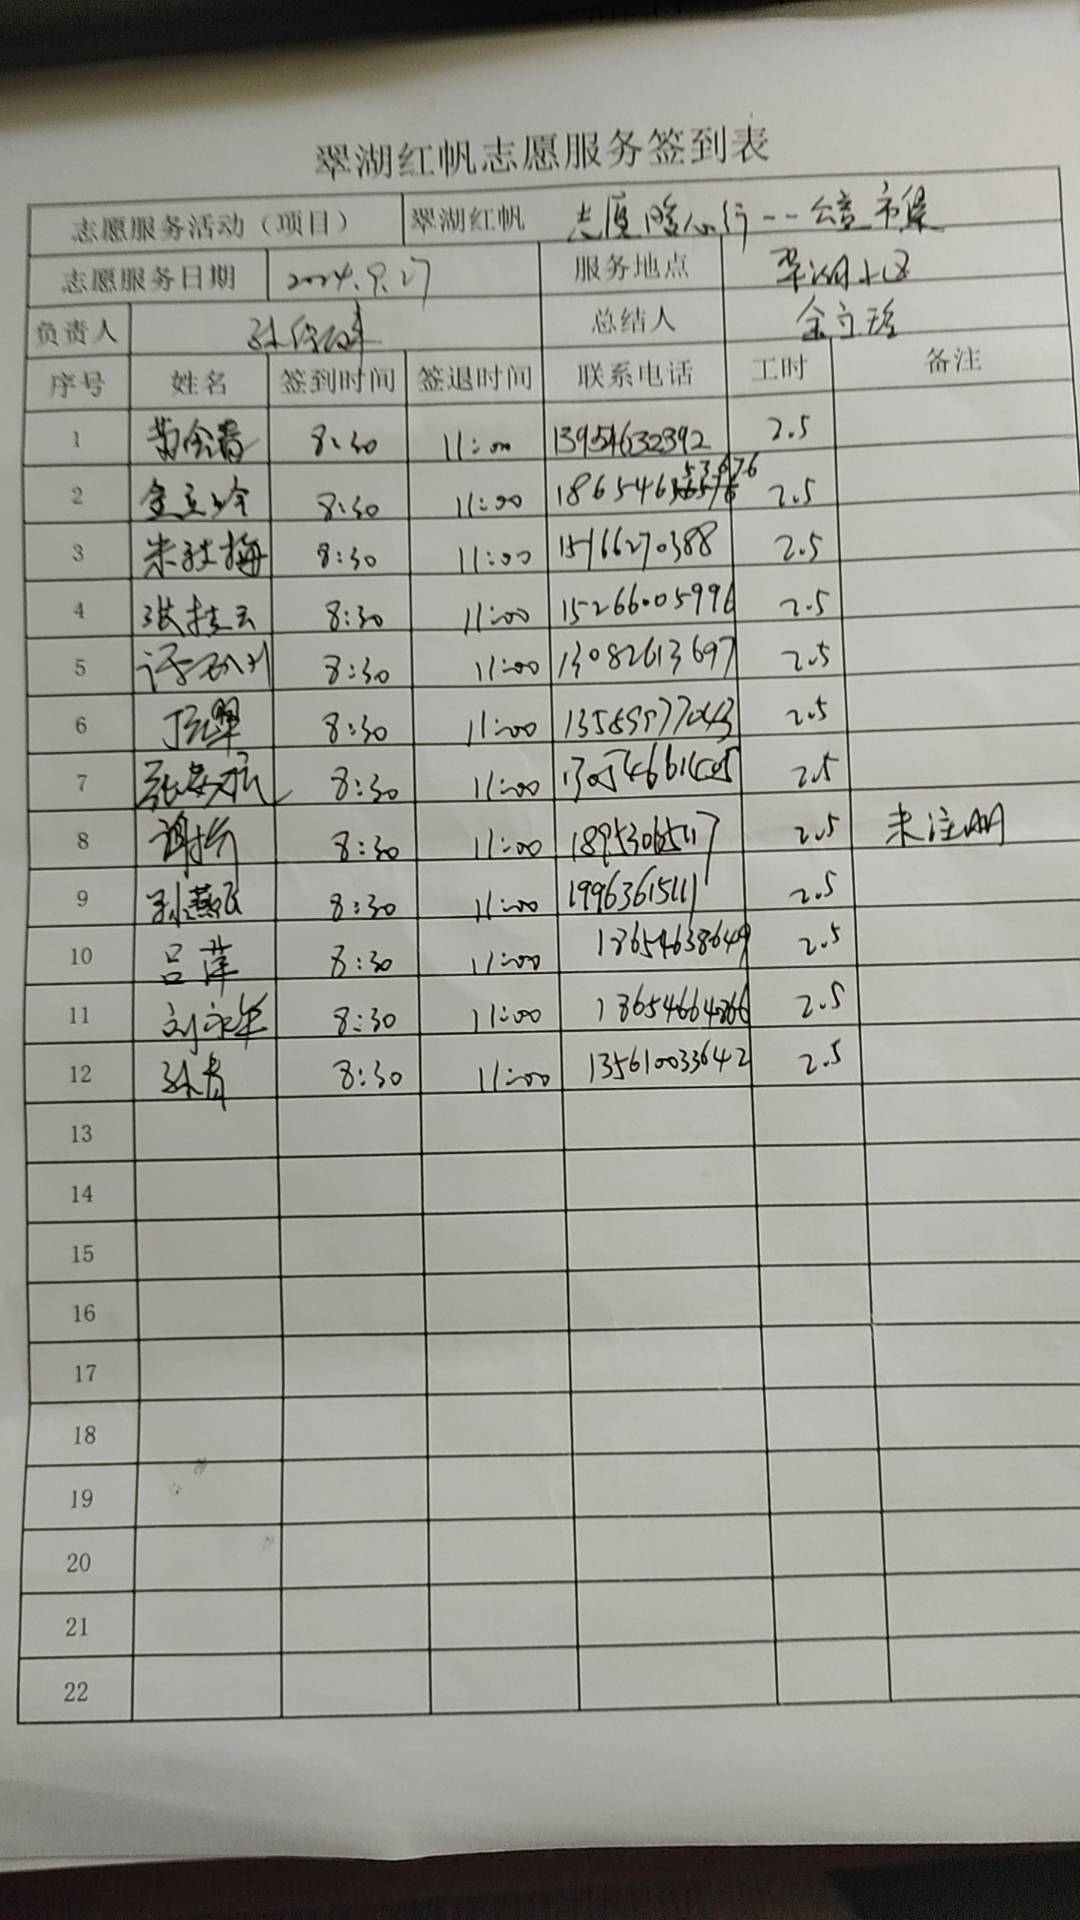 翠湖红帆志愿服务签到表
志愿服务活动（项目） 翠湖红帆 志愿暖心行--公益市集
志愿服务日期 2024.9.27 服务地点 翠湖小区
负责人 总结人 金立玲
序号 姓名 签到时间 签退时间 联系电话 工时 备注
1 8:30 11:00 13954632392 2.5
2 金立玲 8:30 11:00 2.5
3 朱秋梅 8:30 11:00 15166270388 2.5
4 张桂云 8:30 11:00 15266005996 2.5
5 8:30 11:00 13082613697 2.5
6 8:30 11:00 2.5
7 8:30 11:00 2.5
8 8:30 11:00 2.5 未注册
9 孙燕民 8:30 11:00 19963615111 2.5
10 吕萍 8:30 11:00 18654638649 2.5
11 刘永华 8:30 11:00 18654664266 2.5
12 孙青 8:30 11:00 13561003642 2.5
13
14
15
16
17
18
19
20
21
22